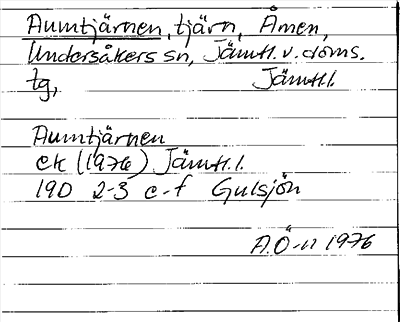 Aumtjärnen, tjärn, Åmen,
Undersåkers sn, Jämtl. v. doms.
tg, Jämtl.l.
Aumtjärnen
ek (1976) Jämtl.l.
19D 2-3 e-f Gulsjön
A.Ö-n 1976